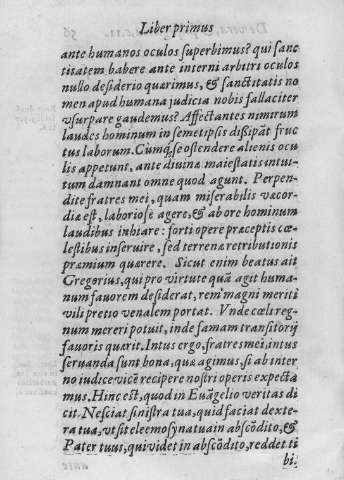 Liber primus
ante humanos oculos superbimus? qui sanc
titatem habere ante interni arbitri oculos
nullo desiderio quærimus, & sanctitatis no
men apud humana judicia nobis fallaciter
vsurpare gaudemus? Affectantes nimirum
laudes hominum in semetipsis dissipãt fruc
tus laborum. Cùmq́; se ostendere alienis ocu
lis appetunt, ante diuinæ maiestatis intui-
tum damnant omne quod agunt. Perpen-
dite fratres mei, quam miserabilis væcor-
dia est, laboriosè agere, & ab ore hominum
laudibus inhiare: forti opere præceptis cœ-
lestibus inseruire, sed terrenæ retributionis
præmium quærere. Sicut enim beatus ait
Gregorius, qui pro virtute quã agit huma-
num fauorem desiderat, rem magni meriti
vili pretio venalem portat. Vnde cœli reg-
num mereri potuit, inde famam transitorij
fauoris quærit. Intus ergo, fratres mei, intus
seruanda sunt bona, quæ agimus, si ab inter
no iudice vicẽ recipere nostri operis expecta
mus. Hinc est, quod in Euãgelio veritas di
cit. Nesciat sinistra tua, quid faciat dexte-
ra tua, vt sit eleemosyna tua in abscõdito, &
Pater tuus, qui videt in abscõdito, reddet ti
bi.